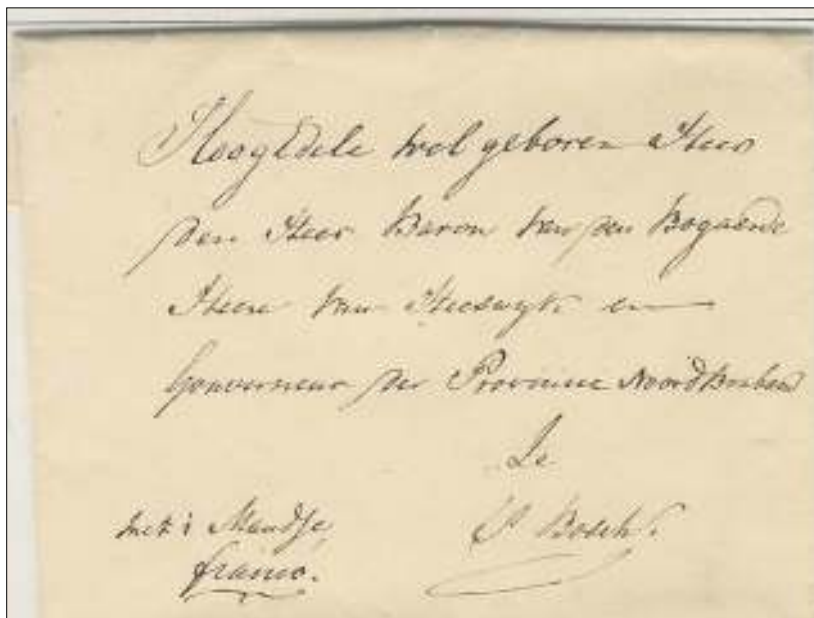 HoogEdele wel geboren Heer
den Heer Baron van den Bogaerde
Heere van Heeswyk en
Gouverneur der Provincie Noord Braband
Te
S Bosch.
met 1 Mandje
franco.